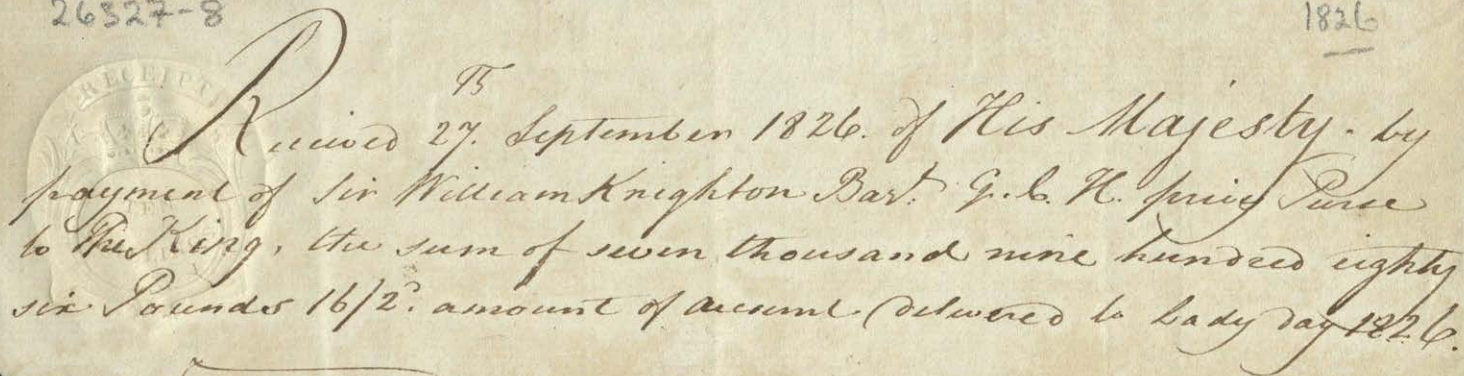 26327-8
1826
RECEIPT
Received 27th September 1826. of His Majesty. by
payment of Sir William Knighton Bart. G. C. H. privy Purse
to The King, the sum of seven thousand nine hundred eighty
six Pounds 16/2d. amount of account delivered to Lady Day 1826.